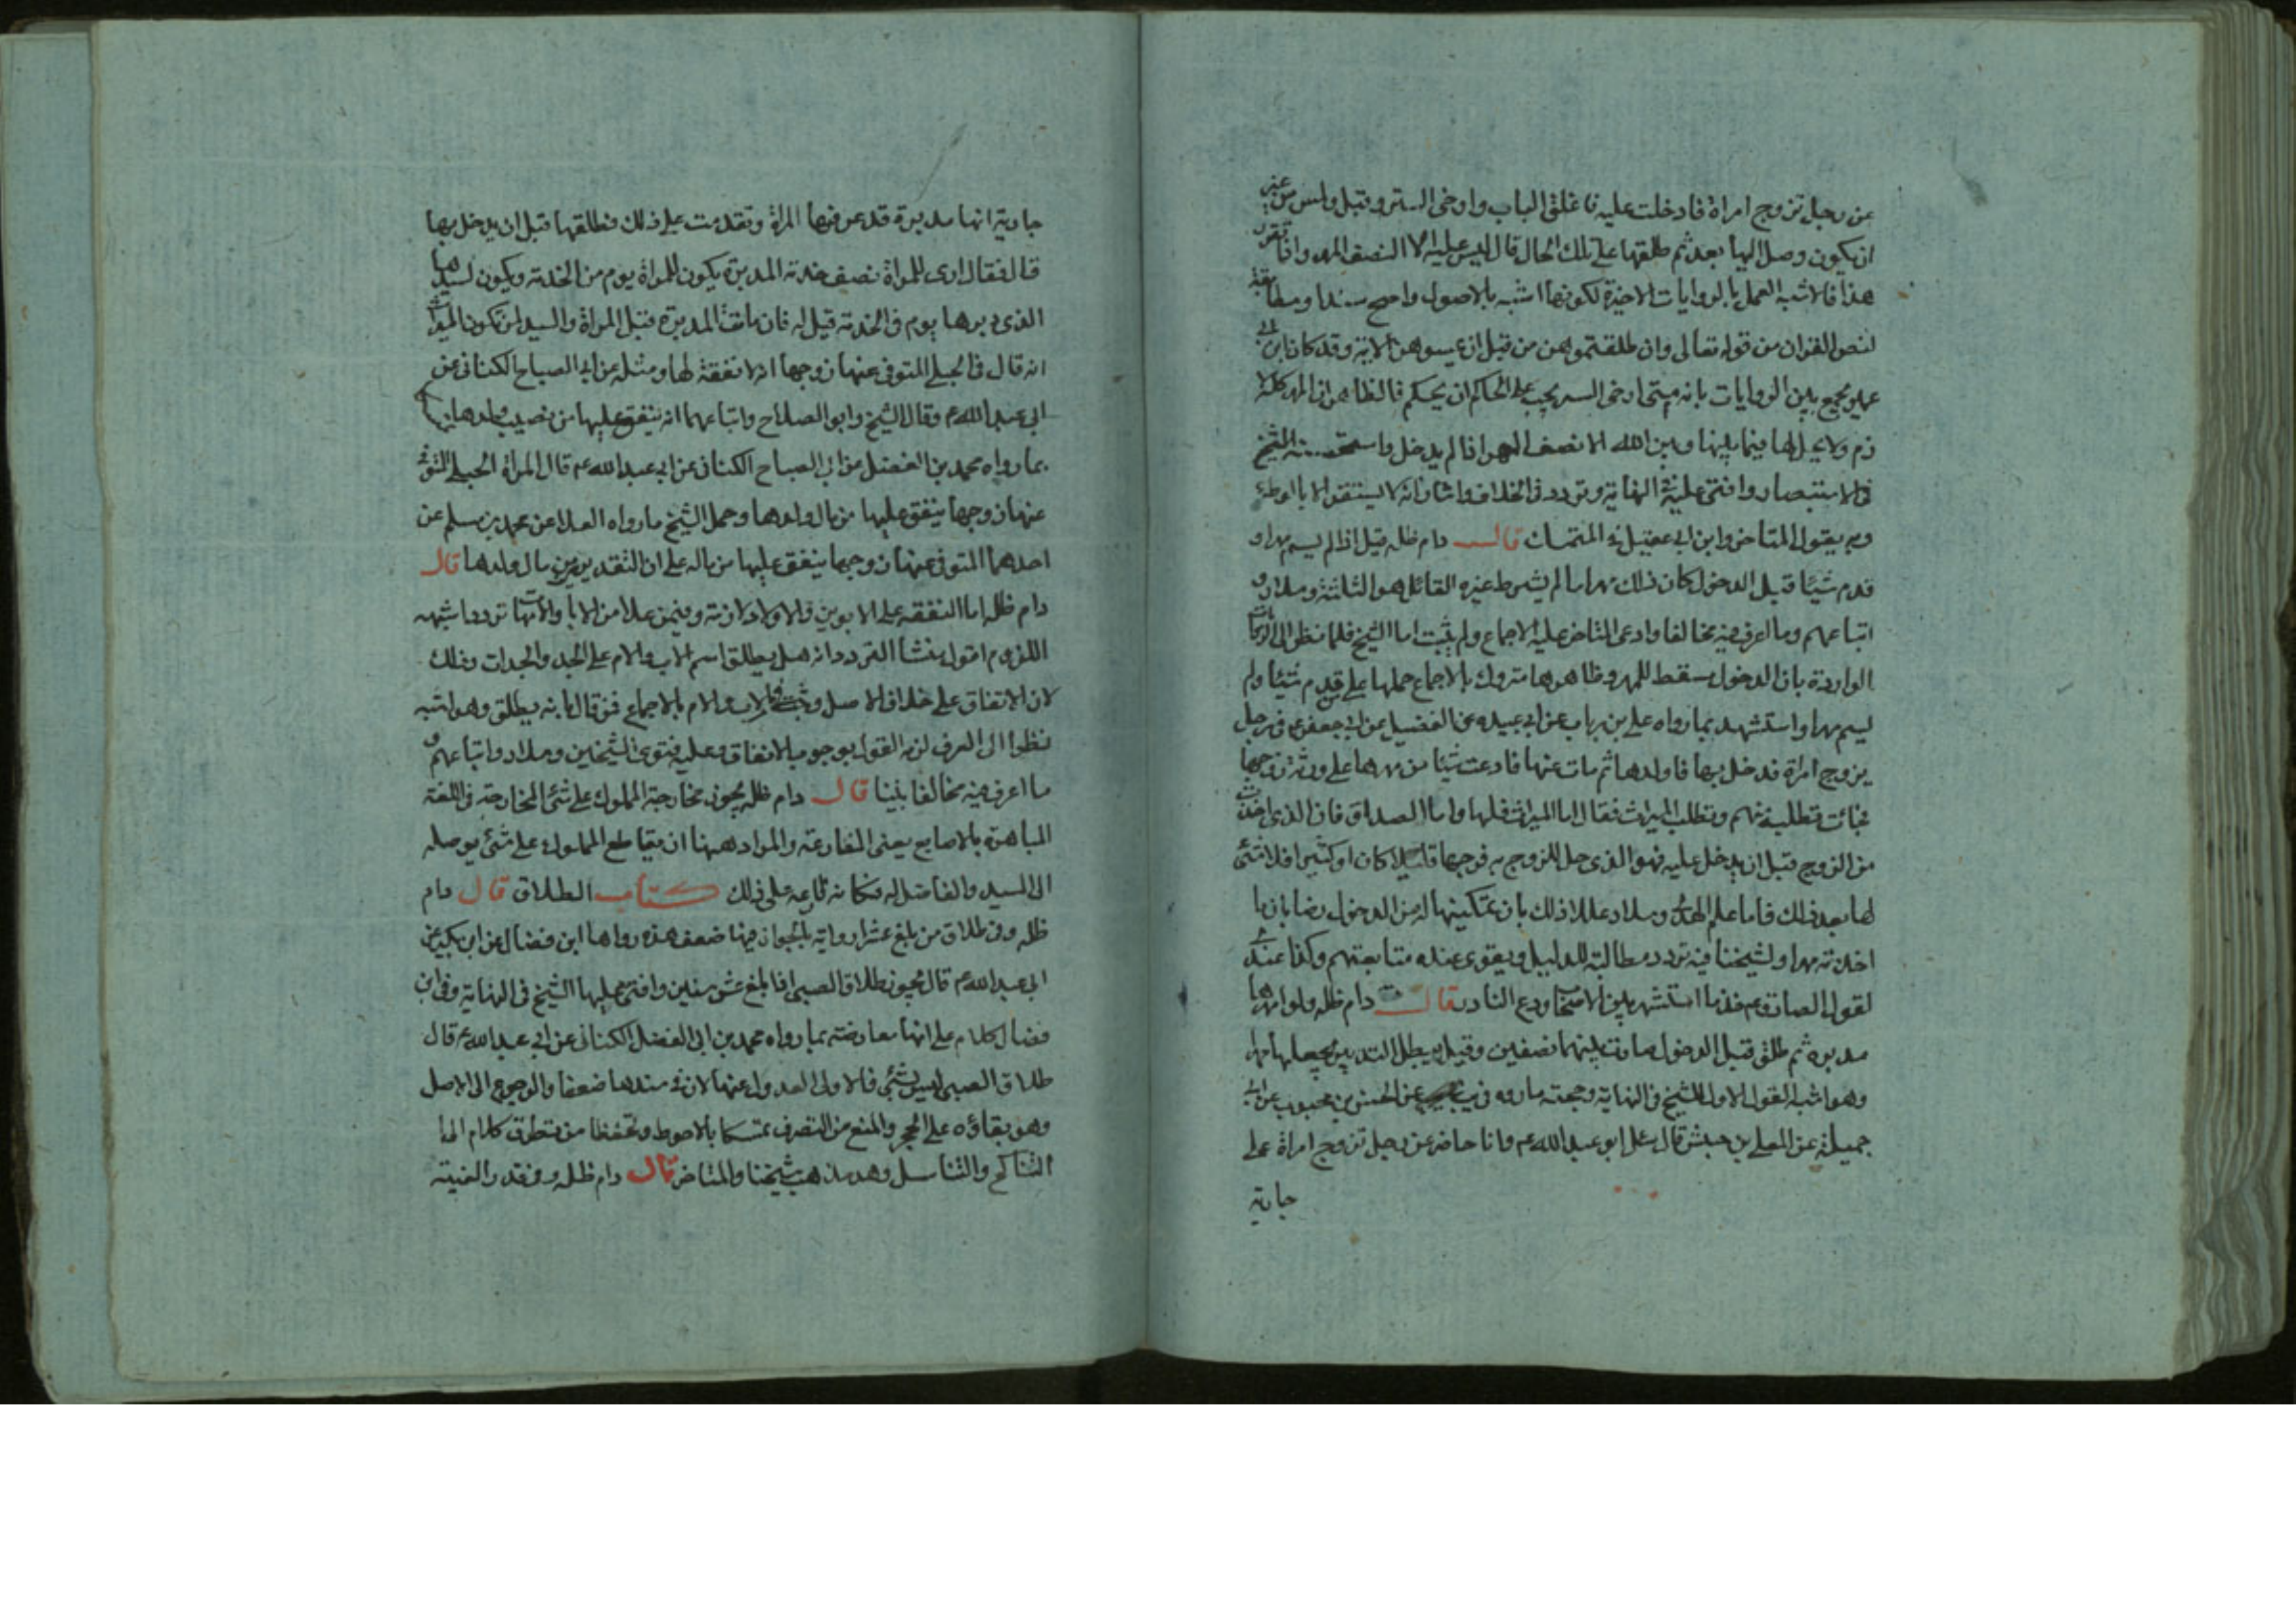 عن رجل تزوج امراة فادخلت عليه فاغلق الباب وارخى الستر وقبل ولمس من غير
ان يكون وصل اليها بعد ثم طلقها على تلك الحال قال ليس عليه الا النصف المهر واذا تقرر
هذا فالاشبه العمل بالروايات الاخيرة لكونها اشبه بالاصول واصح سندا ومطابقة
لنص القران من قوله تعالى وان طلقتموهن من قبل ان تمسوهن الاية وقد كان ابن ابي
عمير يجمع بين الروايات بانه متى ارخى الستر يجب على الحاكم ان يحكم فالظاهر ان المهر كله لا
زم ولا يحل لها فيما بينها وبين الله الا نصف المهر اذا لم يدخل الشيخ
في الاستبصار وافتى عليه في النهاية وتردد في الخلاف واشار انه لا يستقر الا بالوطئ
وبه يقول المتاخر وابن ابي عقيل في المتمسك قال دام ظله قيل اذا لم يسم مهرا و
قدم شيئا قبل الدخول كان ذلك مهرا ما لم يشترط غيره القائل هو الثلثة وسلار و
اتباعهم وما اعرف فيه مخالفا وادعى المتاخر عليه الاجماع ولم يثبت اما الشيخ فلما نظر الى الروايات
الواردة بان الدخول يسقط للمهر وظاهرها متروك بالاجماع حملها على قدم شيئا ولم
يسم مهرا واستشهد بما رواه علي بن رياب عن ابي عبيده عن الفضيل عن ابي جعفر ع في رجل
يزوج امراة فدخل بها فاولدها ثم مات عنها فادعت شيئا من مهرها على ورثة زوجها
فجائت تطلبه منهم وتطلب الميراث فقال اما الميراث فلها واما الصداق فان الذي اخذت
من الزوج قبل ان يدخل عليه فهو الذي حل للزوج به فرجها قليلا كان او كثيرا فلا شئ
لها بعد ذلك فاما علم الهدى وسلار عللا ذلك بان تمكينها له من الدخول رضا بان ما
اخذته مهرا ولشيخنا فيه تردد مطالبة للدليل ويقوى عنده متابعتهم وكذا عندي
لقول الصادق ع خذ ما اشتهر بين الاصحاب ودع النادر قال دام ظله ولو امهرها
مدبره ثم طلق قبل الدخول صارت بينهما نصفين وقيل يبطل التدبير بجعلها مهرا
وهو اشبه القول الاول للشيخ في النهاية وحجته ما روه في عن الحسن بن محبوب عن ابي
جميلة عن المعلى بن خنيس قال سئل ابو عبد الله ع وانا حاضر عن رجل تزوج امراة على
جارية
جارية انها مدبرة قد عرفها المراة وتقدمت على ذلك فطلقها قبل ان يدخل بها
قال فقال ارى للمراة نصف خدمة المدبرة يكون للمراة يوم من الخدمة ويكون لسيدها
الذي دبرها يوم في الخدمة قيل له فان ماتت المدبرة قبل المراة والسيد لمن تكون الميراث
انه قال في الحبلى المتوفى عنها زوجها انه لا نفقة لها ومثله عن ابي الصباح الكناني عن
ابي عبد الله ع وقال الشيخ وابو الصلاح واتباعهما انه ينفق عليها من نصيب ولدها
بما رواه محمد بن الفضيل عن ابي الصباح الكناني عن ابي عبد الله ع قال المراة الحبلى المتوفى
عنها زوجها ينفق عليها من مال ولدها وحمل الشيخ ما رواه العلا عن محمد بن مسلم عن
احدهما المتوفى عنها زوجها ينفق عليها من ماله على ان التقدير من مال ولدها قال
دام ظله اما النفقه على الابوين والاولاد لازمة وفيمن علا من الابا والامهات تردد اشبهه
اللزوم اقول منشا التردد انه هل يطلق اسم الاب والام على الجد والجدات وذلك
لان الاتفاق على خلاف الاصل وجب للاب والام بالاجماع فمن قال بانه يطلق وهو اشبه
نظرا الى العرف لزمه القول بوجوب الانفاق وعليه فتوى الشيخين وسلار واتباعهم و
ما اعرف فيه مخالفا بيننا قال دام ظله يجوز مخارجة المملوك على شئ المخارجة في اللغة
المباهرة بالاصابع يعني المقارعة والمراد ههنا ان يقاطع المملوك على شئ يوصله
الى السيد والفاضل له فكانه قارعه على ذلك كتاب الطلاق قال دام
ظله وفي طلاق من بلغ عشرا رواية بالجواز فيها ضعف هذه رواها ابن فضال عن ابن بكير عن
ابي عبد الله ع قال يجوز طلاق الصبي اذا بلغ عشر سنين وافتى عليها الشيخ في النهاية وفي ابن
فضال كلام على انها معارضته بما رواه محمد بن ابي الفضل الكناني عن ابي عبد الله ع قال
طلاق الصبي ليس بشئ فالاولى العدول عنها لان في سندها ضعفا والرجوع الى الاصل
وهو بقاؤه على الحجر والمنع من التصرف تمسكا بالاحوط وتحفظا من تطرق كلام الى
التناكح والتناسل وهو مذهب شيخنا والمتاخر قال دام ظله وفي قدر الغيبة